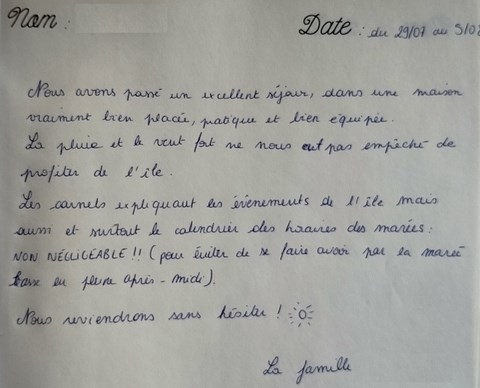 Nom :
Date : du 29/07 au 5/08
Nous avons passé un excellent séjour, dans une maison
vraiment bien placée, pratique et bien équipée.
La pluie et le vent fort ne nous ont pas empêché de
profiter de l'île.
Les carnets expliquant les évènements de l'île mais
aussi et surtout le calendrier des horaires des marées :
NON NÉGLIGEABLE !! (pour éviter de se faire avoir par la marée
basse en pleine après-midi).
Nous reviendrons sans hésiter !
La famille